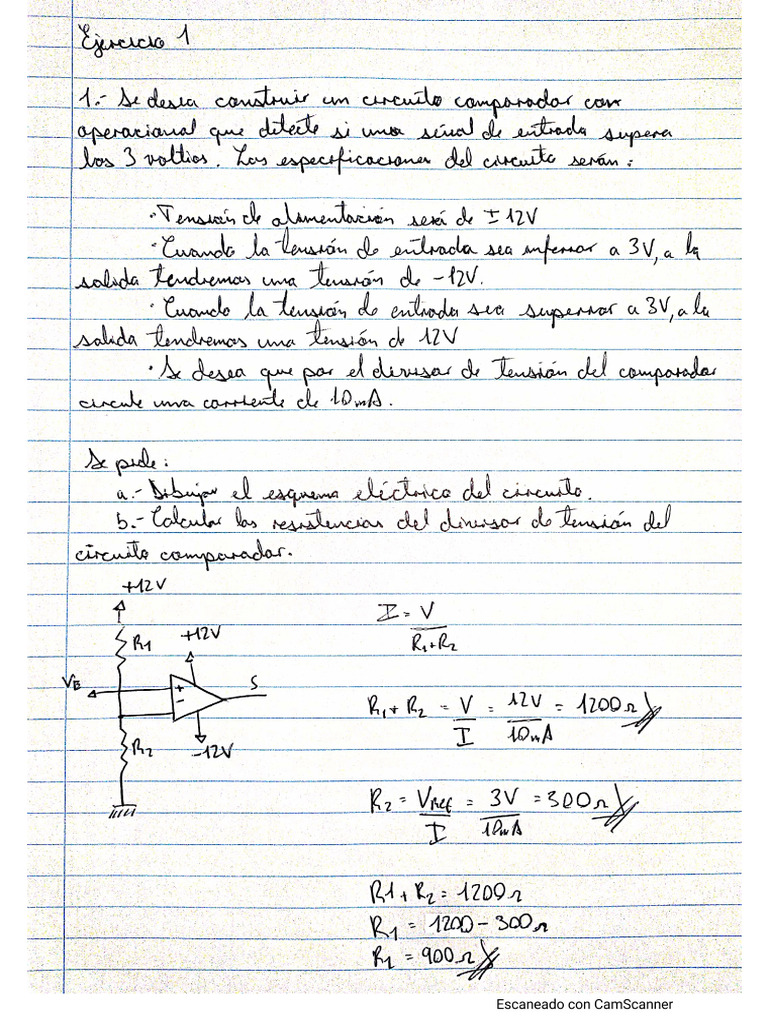 Ejercicio 1
1.- Se desea construir un circuito comparador con
operacional que detecte si una señal de entrada supera
los 3 voltios. Las especificaciones del circuito serán:
· Tensión de alimentación será de ±12V
· Cuando la tensión de entrada sea inferior a 3V, a la
salida tendremos una tensión de -12V.
· Cuando la tensión de entrada sea superior a 3V, a la
salida tendremos una tensión de 12V
· Se desea que por el divisor de tensión del comparador
circule una corriente de 10mA.
Se pide:
a.- Dibujar el esquema eléctrico del circuito.
b.- Calcular las resistencias del divisor de tensión del
circuito comparador.
+12V
R1
+12V
VE
+
-
S
-12V
R2
I = V / R1+R2
R1 + R2 = V / I = 12V / 10mA = 1200Ω
R2 = VRef / I = 3V / 10mA = 300Ω
R1 + R2 = 1200Ω
R1 = 1200 - 300Ω
R1 = 900Ω
Escaneado con CamScanner